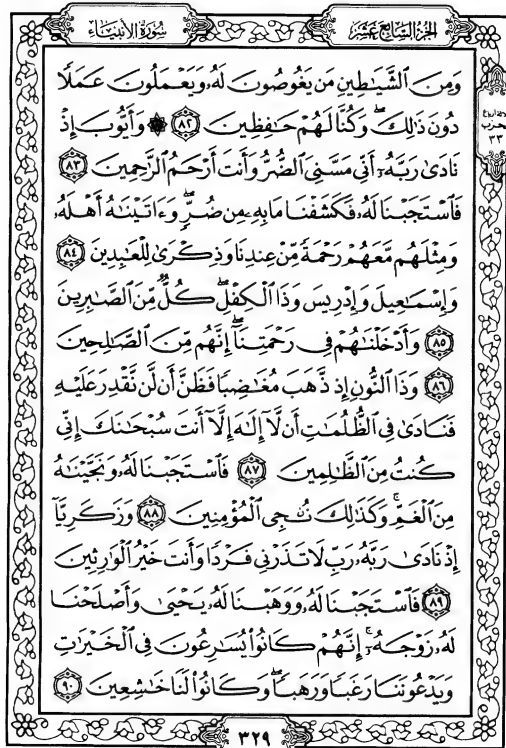 سُورَةُ الأَنبِيَاء
الجُزءُ السَّابِع عَشَر
وَمِنَ ٱلشَّيَٰطِينِ مَن يَغُوصُونَ لَهُۥ وَيَعْمَلُونَ عَمَلًا
دُونَ ذَٰلِكَ ۖ وَكُنَّا لَهُمْ حَٰفِظِينَ ٨٢ ۞ وَأَيُّوبَ إِذْ
نَادَىٰ رَبَّهُۥٓ أَنِّى مَسَّنِىَ ٱلضُّرُّ وَأَنتَ أَرْحَمُ ٱلرَّٰحِمِينَ ٨٣
فَٱسْتَجَبْنَا لَهُۥ فَكَشَفْنَا مَا بِهِۦ مِن ضُرٍّ ۖ وَءَاتَيْنَٰهُ أَهْلَهُۥ
وَمِثْلَهُم مَّعَهُمْ رَحْمَةً مِّنْ عِندِنَا وَذِكْرَىٰ لِلْعَٰبِدِينَ ٨٤
وَإِسْمَٰعِيلَ وَإِدْرِيسَ وَذَا ٱلْكِفْلِ ۖ كُلٌّ مِّنَ ٱلصَّٰبِرِينَ
٨٥ وَأَدْخَلْنَٰهُمْ فِى رَحْمَتِنَآ ۖ إِنَّهُم مِّنَ ٱلصَّٰلِحِينَ
٨٦ وَذَا ٱلنُّونِ إِذ ذَّهَبَ مُغَٰضِبًا فَظَنَّ أَن لَّن نَّقْدِرَ عَلَيْهِ
فَنَادَىٰ فِى ٱلظُّلُمَٰتِ أَن لَّآ إِلَٰهَ إِلَّآ أَنتَ سُبْحَٰنَكَ إِنِّى
كُنتُ مِنَ ٱلظَّٰلِمِينَ ٨٧ فَٱسْتَجَبْنَا لَهُۥ وَنَجَّيْنَٰهُ
مِنَ ٱلْغَمِّ ۚ وَكَذَٰلِكَ نُـۨجِى ٱلْمُؤْمِنِينَ ٨٨ وَزَكَرِيَّآ
إِذْ نَادَىٰ رَبَّهُۥ رَبِّ لَا تَذَرْنِى فَرْدًا وَأَنتَ خَيْرُ ٱلْوَٰرِثِينَ
٨٩ فَٱسْتَجَبْنَا لَهُۥ وَوَهَبْنَا لَهُۥ يَحْيَىٰ وَأَصْلَحْنَا
لَهُۥ زَوْجَهُۥٓ ۚ إِنَّهُمْ كَانُوا۟ يُسَٰرِعُونَ فِى ٱلْخَيْرَٰتِ
وَيَدْعُونَنَا رَغَبًا وَرَهَبًا ۖ وَكَانُوا۟ لَنَا خَٰشِعِينَ ٩٠
حزب
٣٣
٣٢٩